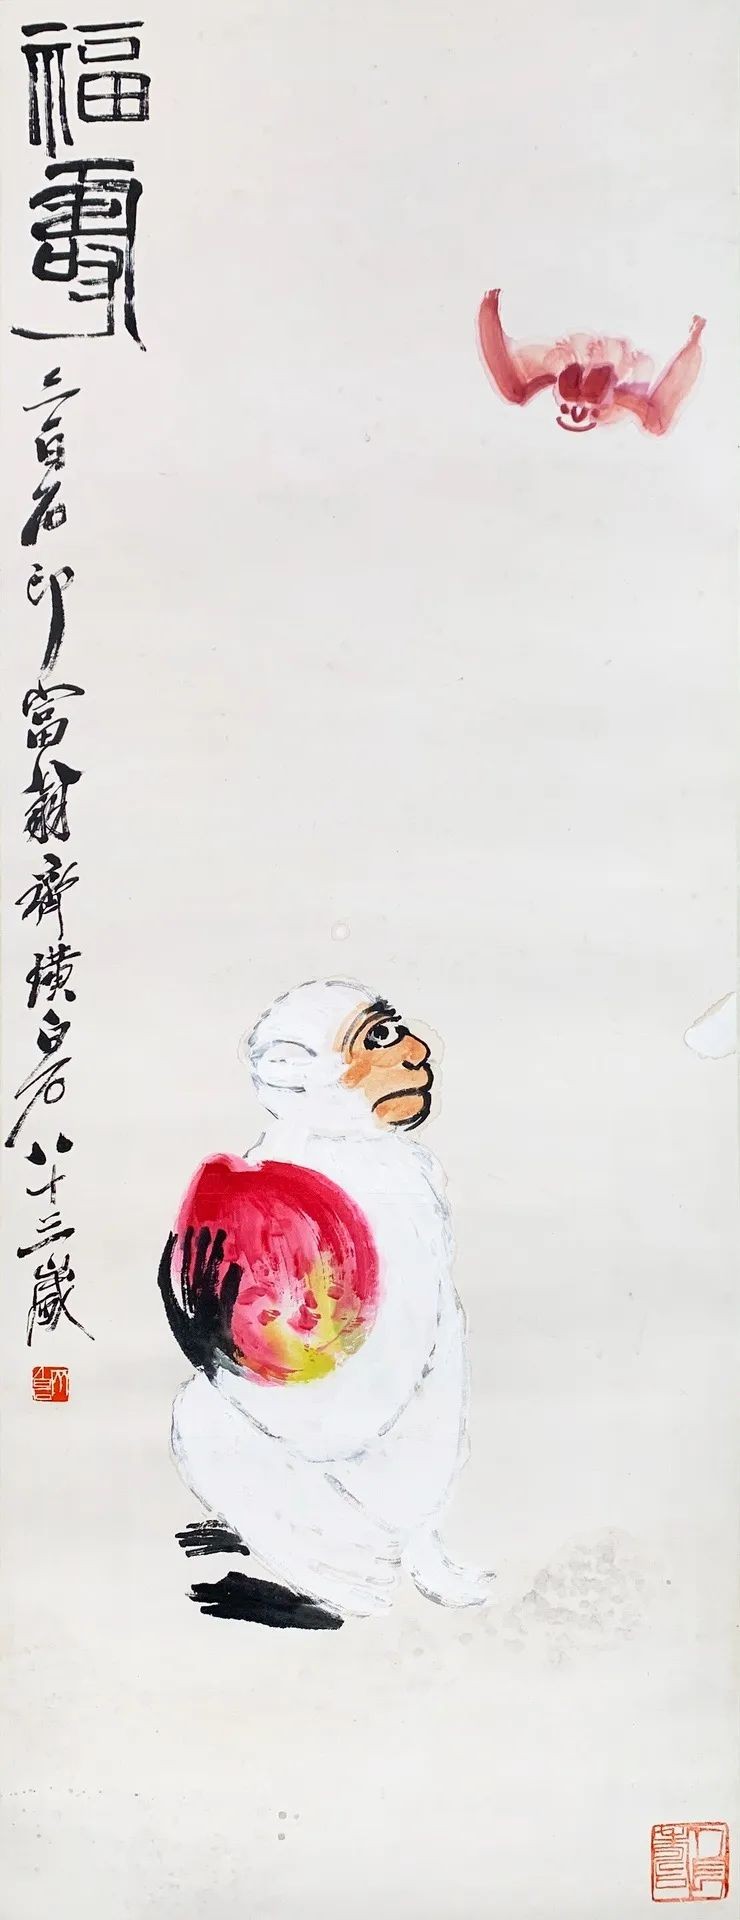 福壽
三百石印富翁齊璜白石八十三歲
人長壽